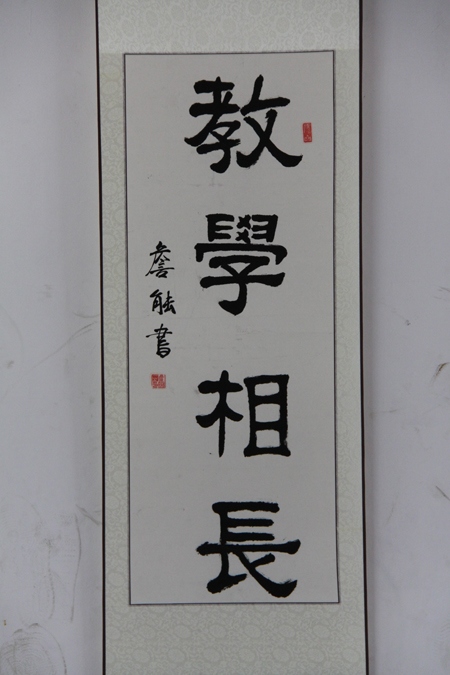 教學相長
詹能書